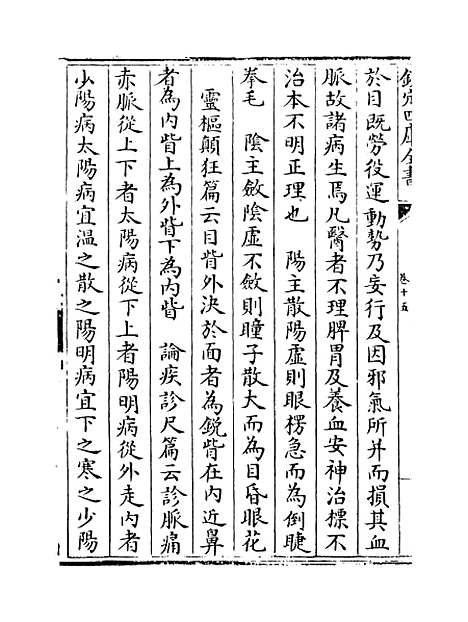 欽定四庫全書
卷十五
於目既勞役運動勢乃妄行及因邪氣所并而損其血
脈故諸病生焉凡醫者不理脾胃及養血安神治標不
治本不明正理也　陽主散陽虛則眼楞急而為倒睫
拳毛　陰主斂陰虛不斂則瞳子散大而為目昏眼花
靈樞顛狂篇云目眥外決於面者為銳眥在內近鼻
者為內眥上為外眥下為內眥　論疾診尺篇云診脈痛
赤脈從上下者太陽病從下上者陽明病從外走內者
少陽病太陽病宜溫之散之陽明病宜下之寒之少陽